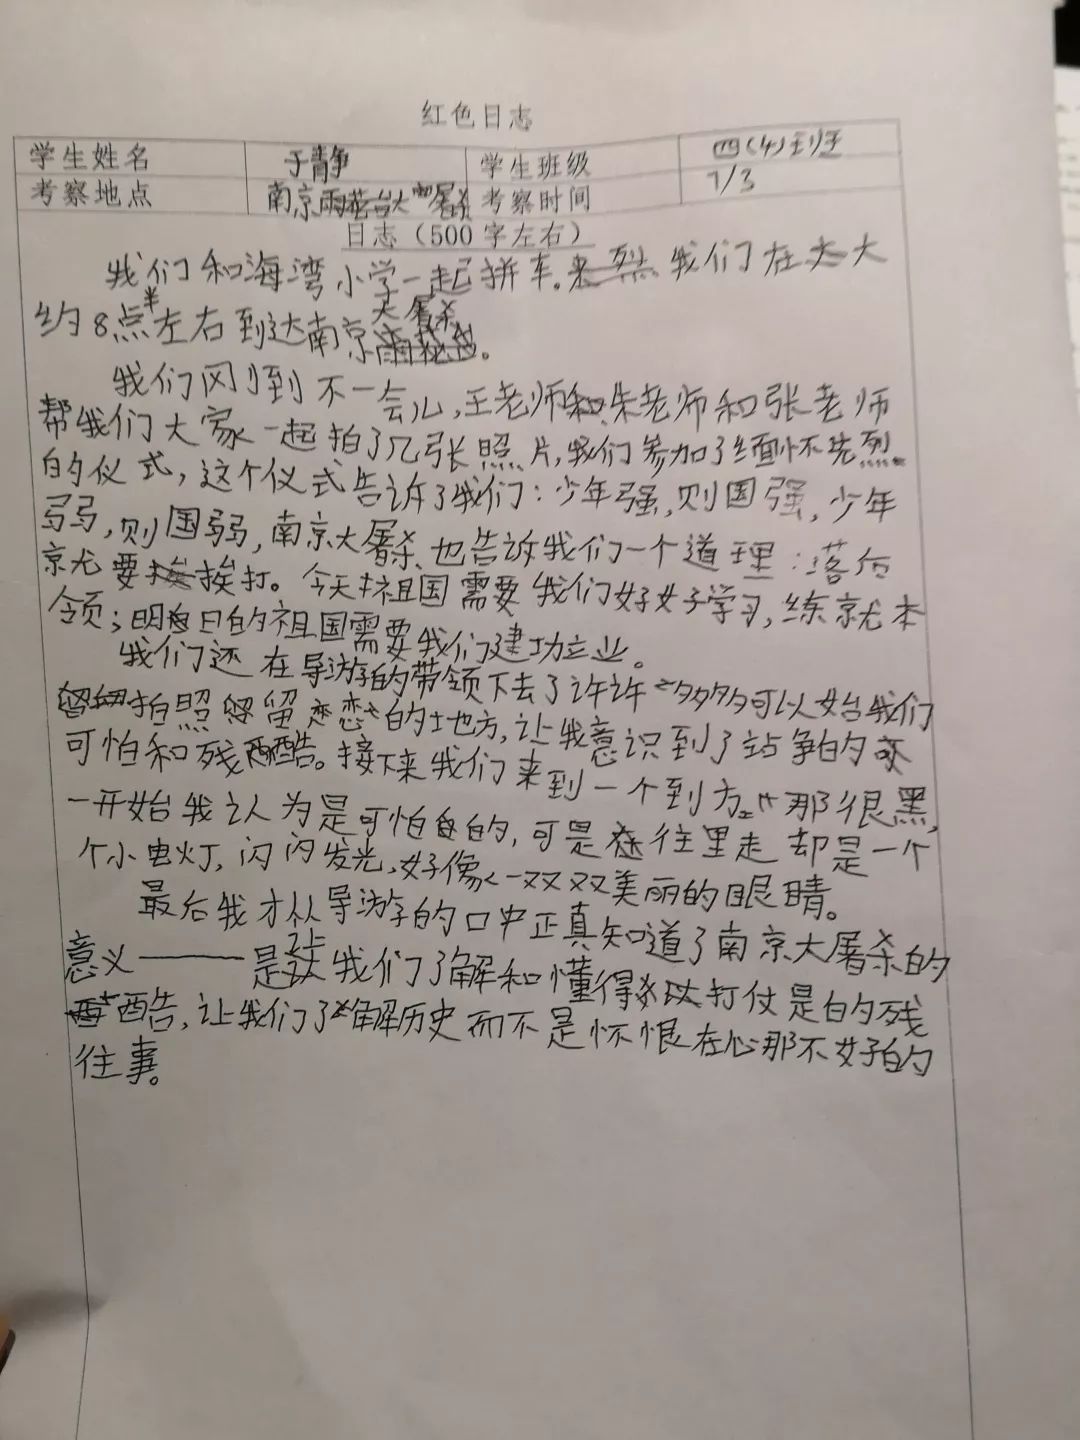 红色日志
学生姓名 于静 学生班级 四(4)班
考察地点 南京大屠杀 考察时间 7/3
日志（500字左右）
我们和海湾小学一起拼车。我们在大
约8点半左右到达南京大屠杀。
我们刚到不一会儿,王老师和朱老师和张老师
帮我们大家一起拍了几张照片,我们参加了缅怀先烈
的仪式,这个仪式告诉了我们:少年强,则国强,少年
弱,则国弱,南京大屠杀也告诉我们一个道理:落后
就要挨打。今天祖国需要我们好好学习,练就本
领;明日的祖国需要我们建功立业。
我们还在导游的带领下去了许许多多可以始我们
拍照留恋的地方,让我意识到了站争的
可怕和残酷。接下来我们来到一个到方,那很黑,
一开始我认为是可怕的,可是往里走却是一个
个小电灯,闪闪发光,好像一双双美丽的眼睛。
最后我才从导游的口中正真知道了南京大屠杀的
意义——是让我们了解和懂得打仗是的残
酷,让我们了解历史而不是怀恨在心那不好的
往事。